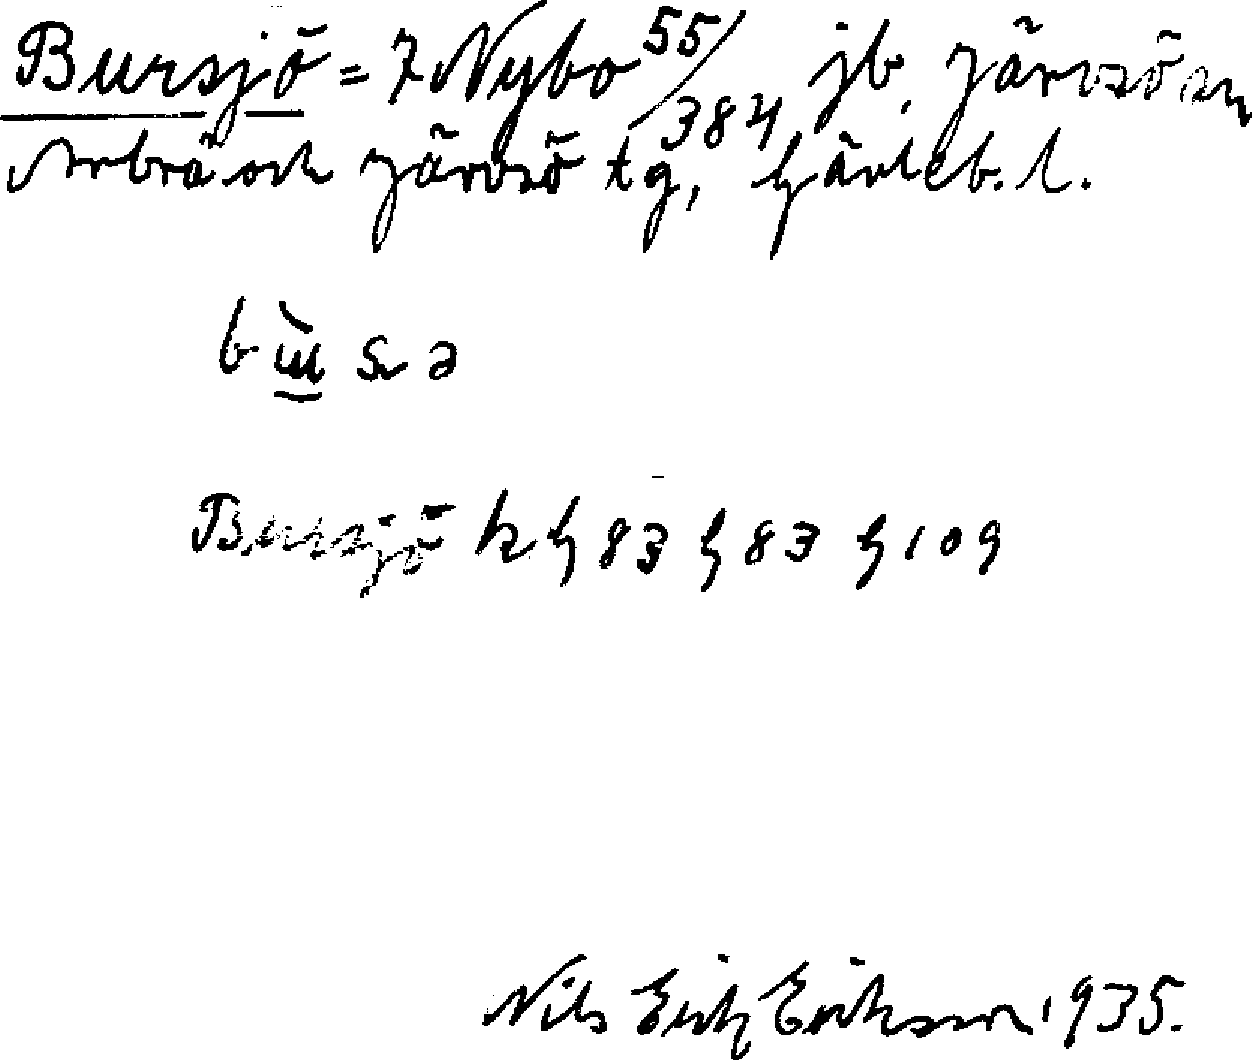 Bursjö = 7 Nybo 55/384 jb, Järvsö sn
Arbrå och Järvsö tg, Gävleb. l.
Bursjö k G 83 G 83 G 109
Nils Erik Eriksson 1935.